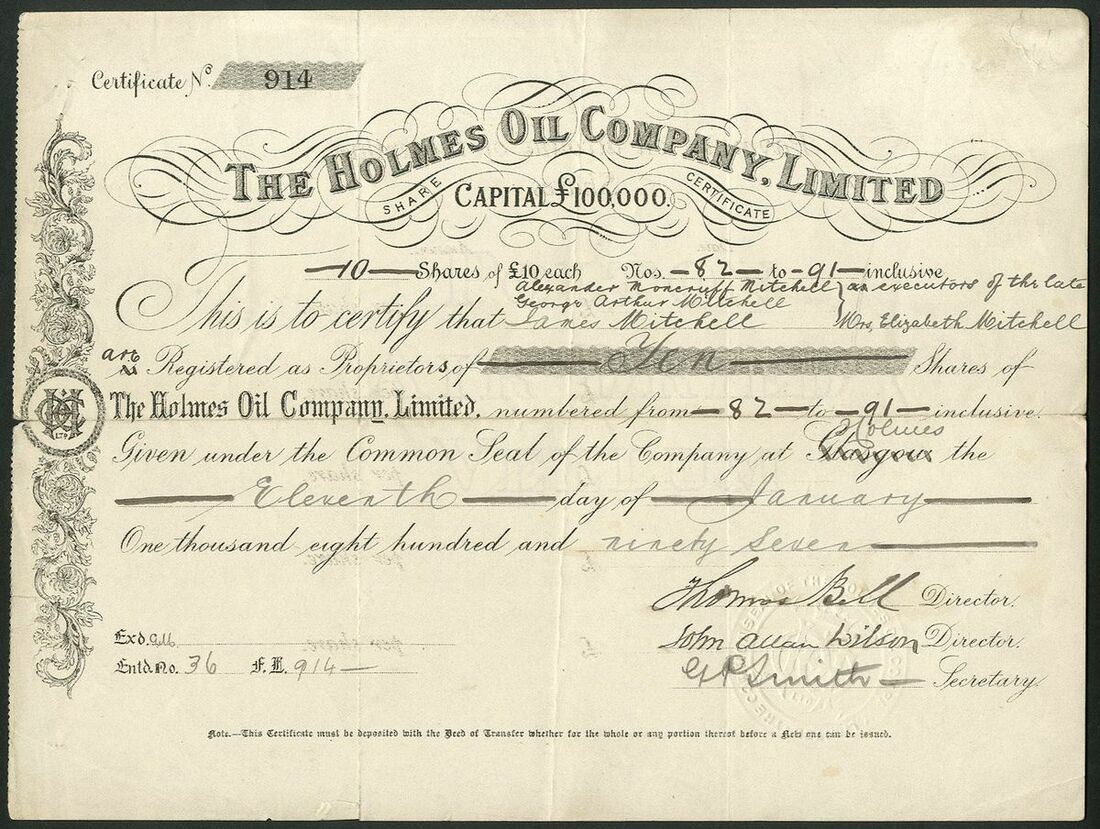 Certificate No. 914
THE HOLMES OIL COMPANY, LIMITED
SHARE CAPITAL £100,000. CERTIFICATE
10 Shares of £10 each Nos. 82 to 91 inclusive
Alexander Moncrieff Mitchell
George Arthur Mitchell
as executors of the late
This is to certify that James Mitchell
Mrs. Elizabeth Mitchell
are Registered as Proprietors, of Ten Shares of
The Holmes Oil Company, Limited, numbered from 82 to 91 inclusive.
Holmes
Given under the Common Seal of the Company at Glasgow the
Eleventh day of January
One thousand eight hundred and ninety Seven
Thomas Bell Director.
John Allan Wilson Director.
Exd.
Entd. No. 36 F. L. 914
Smith Secretary.
Note.—This Certificate must be deposited with the Deed of Transfer whether for the whole or any portion thereof before a New one can be issued.
LTD